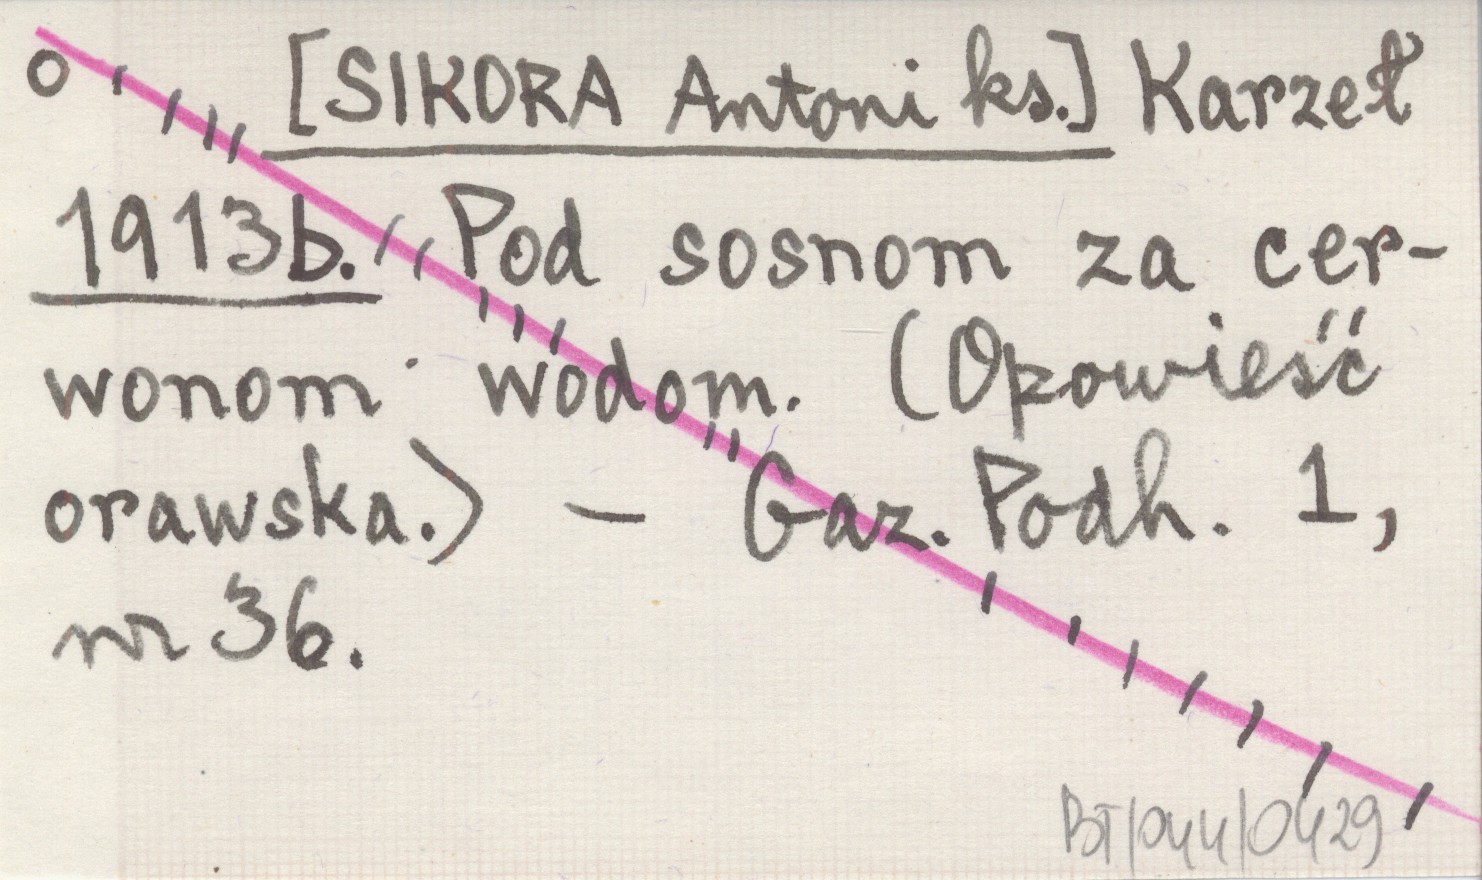 o [SIKORA Antoni ks.] Karzeł
1913b. Pod sosnom za cer-
wonom wodom. (Opowieść
orawska.) – Gaz. Podh. 1,
nr 36.
BT/044/0429